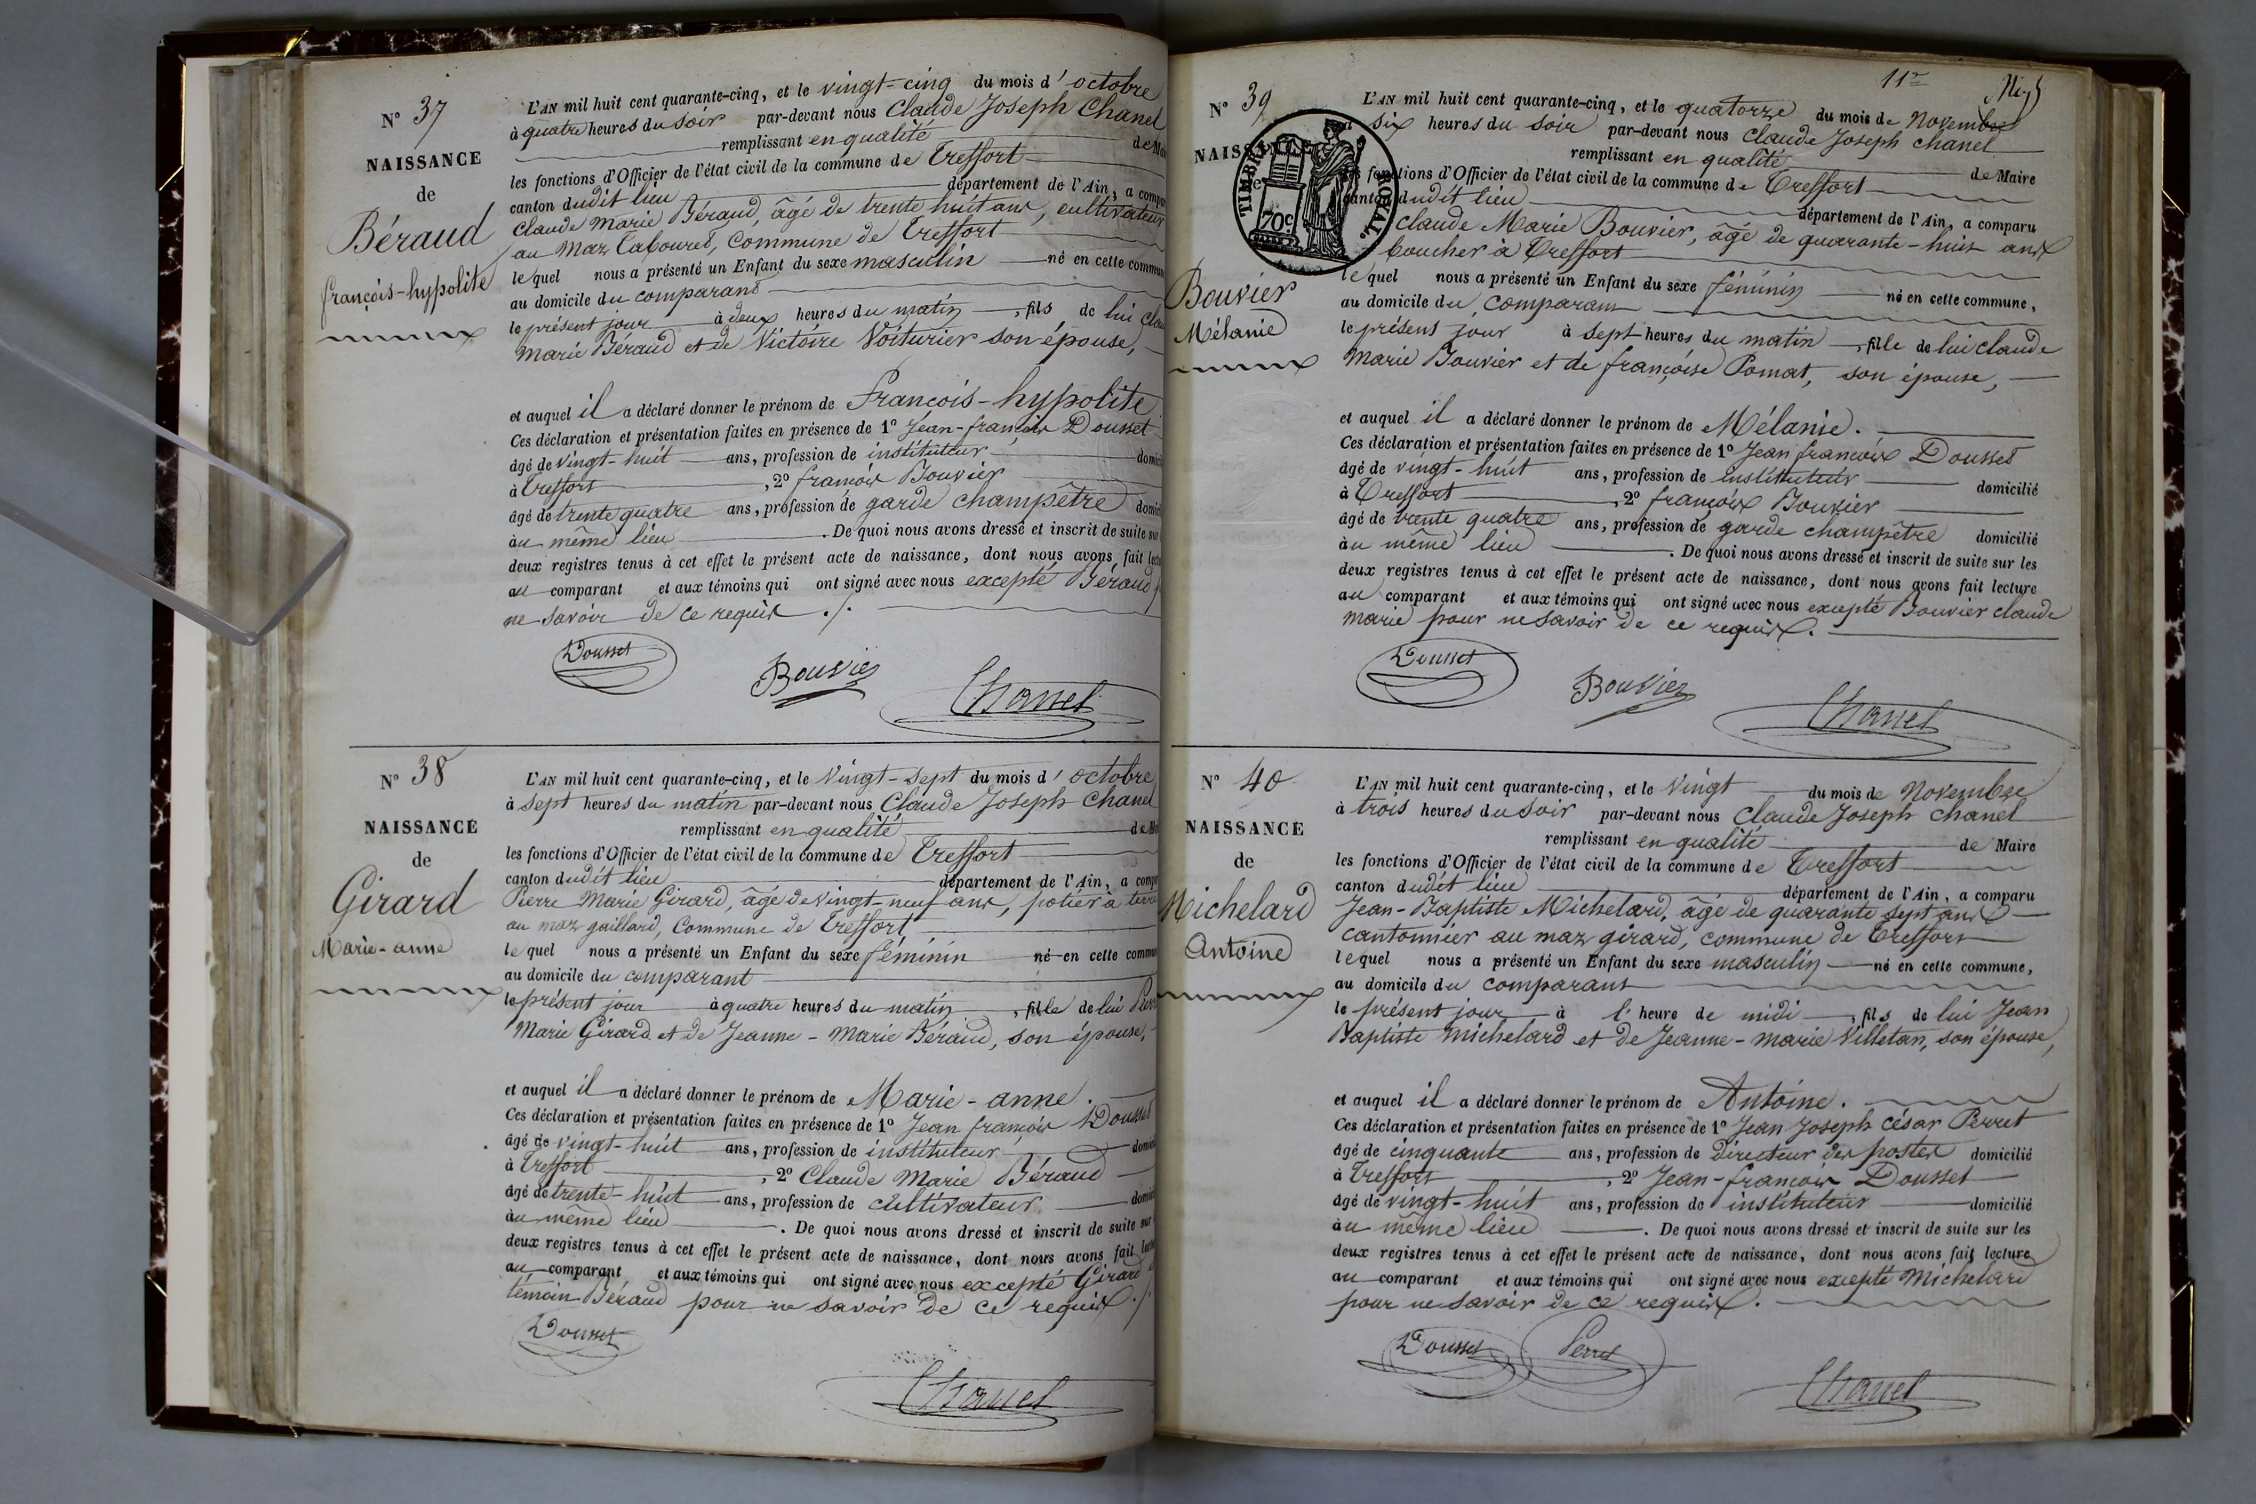 N° 37
NAISSANCE
de
Béraud
françois-hypolite
L'AN mil huit cent quarante-cinq, et le vingt-cinq du mois d'octobre
à quatre heures du soir par-devant nous Claude Joseph Chanel
remplissant en qualité de
les fonctions d'Officier de l'état civil de la commune de Treffort
canton dudit lieu département de l'Ain, a
Claude Marie Béraud, âgé de trente huit ans, cultivateur
au Maz Tabouret, Commune de Treffort
lequel nous a présenté un Enfant du sexe masculin né en cette
au domicile du comparant
le présent jour à deux heures du matin, fils de lui
Marie Béraud et de Victoire Voiturier son épouse,
et auquel il a déclaré donner le prénom de François-hypolite
Ces déclaration et présentation faites en présence de 1° Jean-françois Dousset
âgé de vingt-huit ans, profession de instituteur
à Treffort, 2° françois Bouvier
âgé de trente quatre ans, profession de garde champêtre
au même lieu. De quoi nous avons dressé et inscrit de suite sur
deux registres tenus à cet effet le présent acte de naissance, dont nous avons fait
au comparant et aux témoins qui ont signé avec nous excepté Béraud
ne savoir de ce requis ./.
Dousset Bouvier Chanel
N° 38
NAISSANCE
de
Girard
Marie-anne
L'AN mil huit cent quarante-cinq, et le vingt-sept du mois d'octobre
à sept heures du matin par-devant nous Claude Joseph Chanel
remplissant en qualité de
les fonctions d'Officier de l'état civil de la commune de Treffort
canton dudit lieu département de l'Ain, a
Pierre Marie Girard, âgé de vingt-neuf ans, potier à terre
au maz gaillard, Commune de Treffort
lequel nous a présenté un Enfant du sexe féminin né en cette
au domicile du comparant
le présent jour à quatre heures du matin, fille de lui
Marie Girard et de Jeanne-Marie Béraud, son épouse,
et auquel il a déclaré donner le prénom de Marie-anne.
Ces déclaration et présentation faites en présence de 1° Jean françois Dousset
âgé de vingt-huit ans, profession de instituteur
à Treffort, 2° Claude Marie Béraud
âgé de trente-huit ans, profession de cultivateur
au même lieu. De quoi nous avons dressé et inscrit de suite sur
deux registres tenus à cet effet le présent acte de naissance, dont nous avons fait
au comparant et aux témoins qui ont signé avec nous excepté Girard
témoin Béraud pour ne savoir de ce requis ./.
Dousset
Chanel
11e
N° 39
NAISSANCE
TIMBRE ROYAL.
70c
Bouvier
Mélanie
L'AN mil huit cent quarante-cinq, et le quatorze du mois de Novembre
à six heures du soir par-devant nous Claude Joseph Chanel
remplissant en qualité de Maire
les fonctions d'Officier de l'état civil de la commune de Treffort
canton dudit lieu département de l'Ain, a comparu
Claude Marie Bouvier, âgé de quarante-huit ans
boucher à Treffort
lequel nous a présenté un Enfant du sexe féminin né en cette commune,
au domicile du comparant
le présent jour à sept heures du matin, fille de lui Claude
Marie Bouvier et de françoise Pomat, son épouse,
et auquel il a déclaré donner le prénom de Mélanie.
Ces déclaration et présentation faites en présence de 1° Jean françois Dousset
âgé de vingt-huit ans, profession de instituteur domicilié
à Treffort, 2° françois Bouvier
âgé de trente quatre ans, profession de garde champêtre domicilié
au même lieu. De quoi nous avons dressé et inscrit de suite sur les
deux registres tenus à cet effet le présent acte de naissance, dont nous avons fait lecture
au comparant et aux témoins qui ont signé avec nous excepté Bouvier Claude
Marie pour ne savoir de ce requis.
Dousset Bouvier Chanel
N° 40
NAISSANCE
de
Michelard
Antoine
L'AN mil huit cent quarante-cinq, et le vingt du mois de Novembre
à trois heures du soir par-devant nous Claude Joseph Chanel
remplissant en qualité de Maire
les fonctions d'Officier de l'état civil de la commune de Treffort
canton dudit lieu département de l'Ain, a comparu
Jean-Baptiste Michelard, âgé de quarante sept ans
cantonnier au maz girard, commune de Treffort
lequel nous a présenté un Enfant du sexe masculin né en cette commune,
au domicile du comparant
le présent jour à l'heure de midi, fils de lui Jean
Baptiste Michelard et de Jeanne-Marie Villetan, son épouse,
et auquel il a déclaré donner le prénom de Antoine.
Ces déclaration et présentation faites en présence de 1° Jean Joseph César Perret
âgé de cinquante ans, profession de Directeur des postes domicilié
à Treffort, 2° Jean-françois Dousset
âgé de vingt-huit ans, profession de instituteur domicilié
au même lieu. De quoi nous avons dressé et inscrit de suite sur les
deux registres tenus à cet effet le présent acte de naissance, dont nous avons fait lecture
au comparant et aux témoins qui ont signé avec nous excepté Michelard
pour ne savoir de ce requis.
Dousset Perret
Chanel